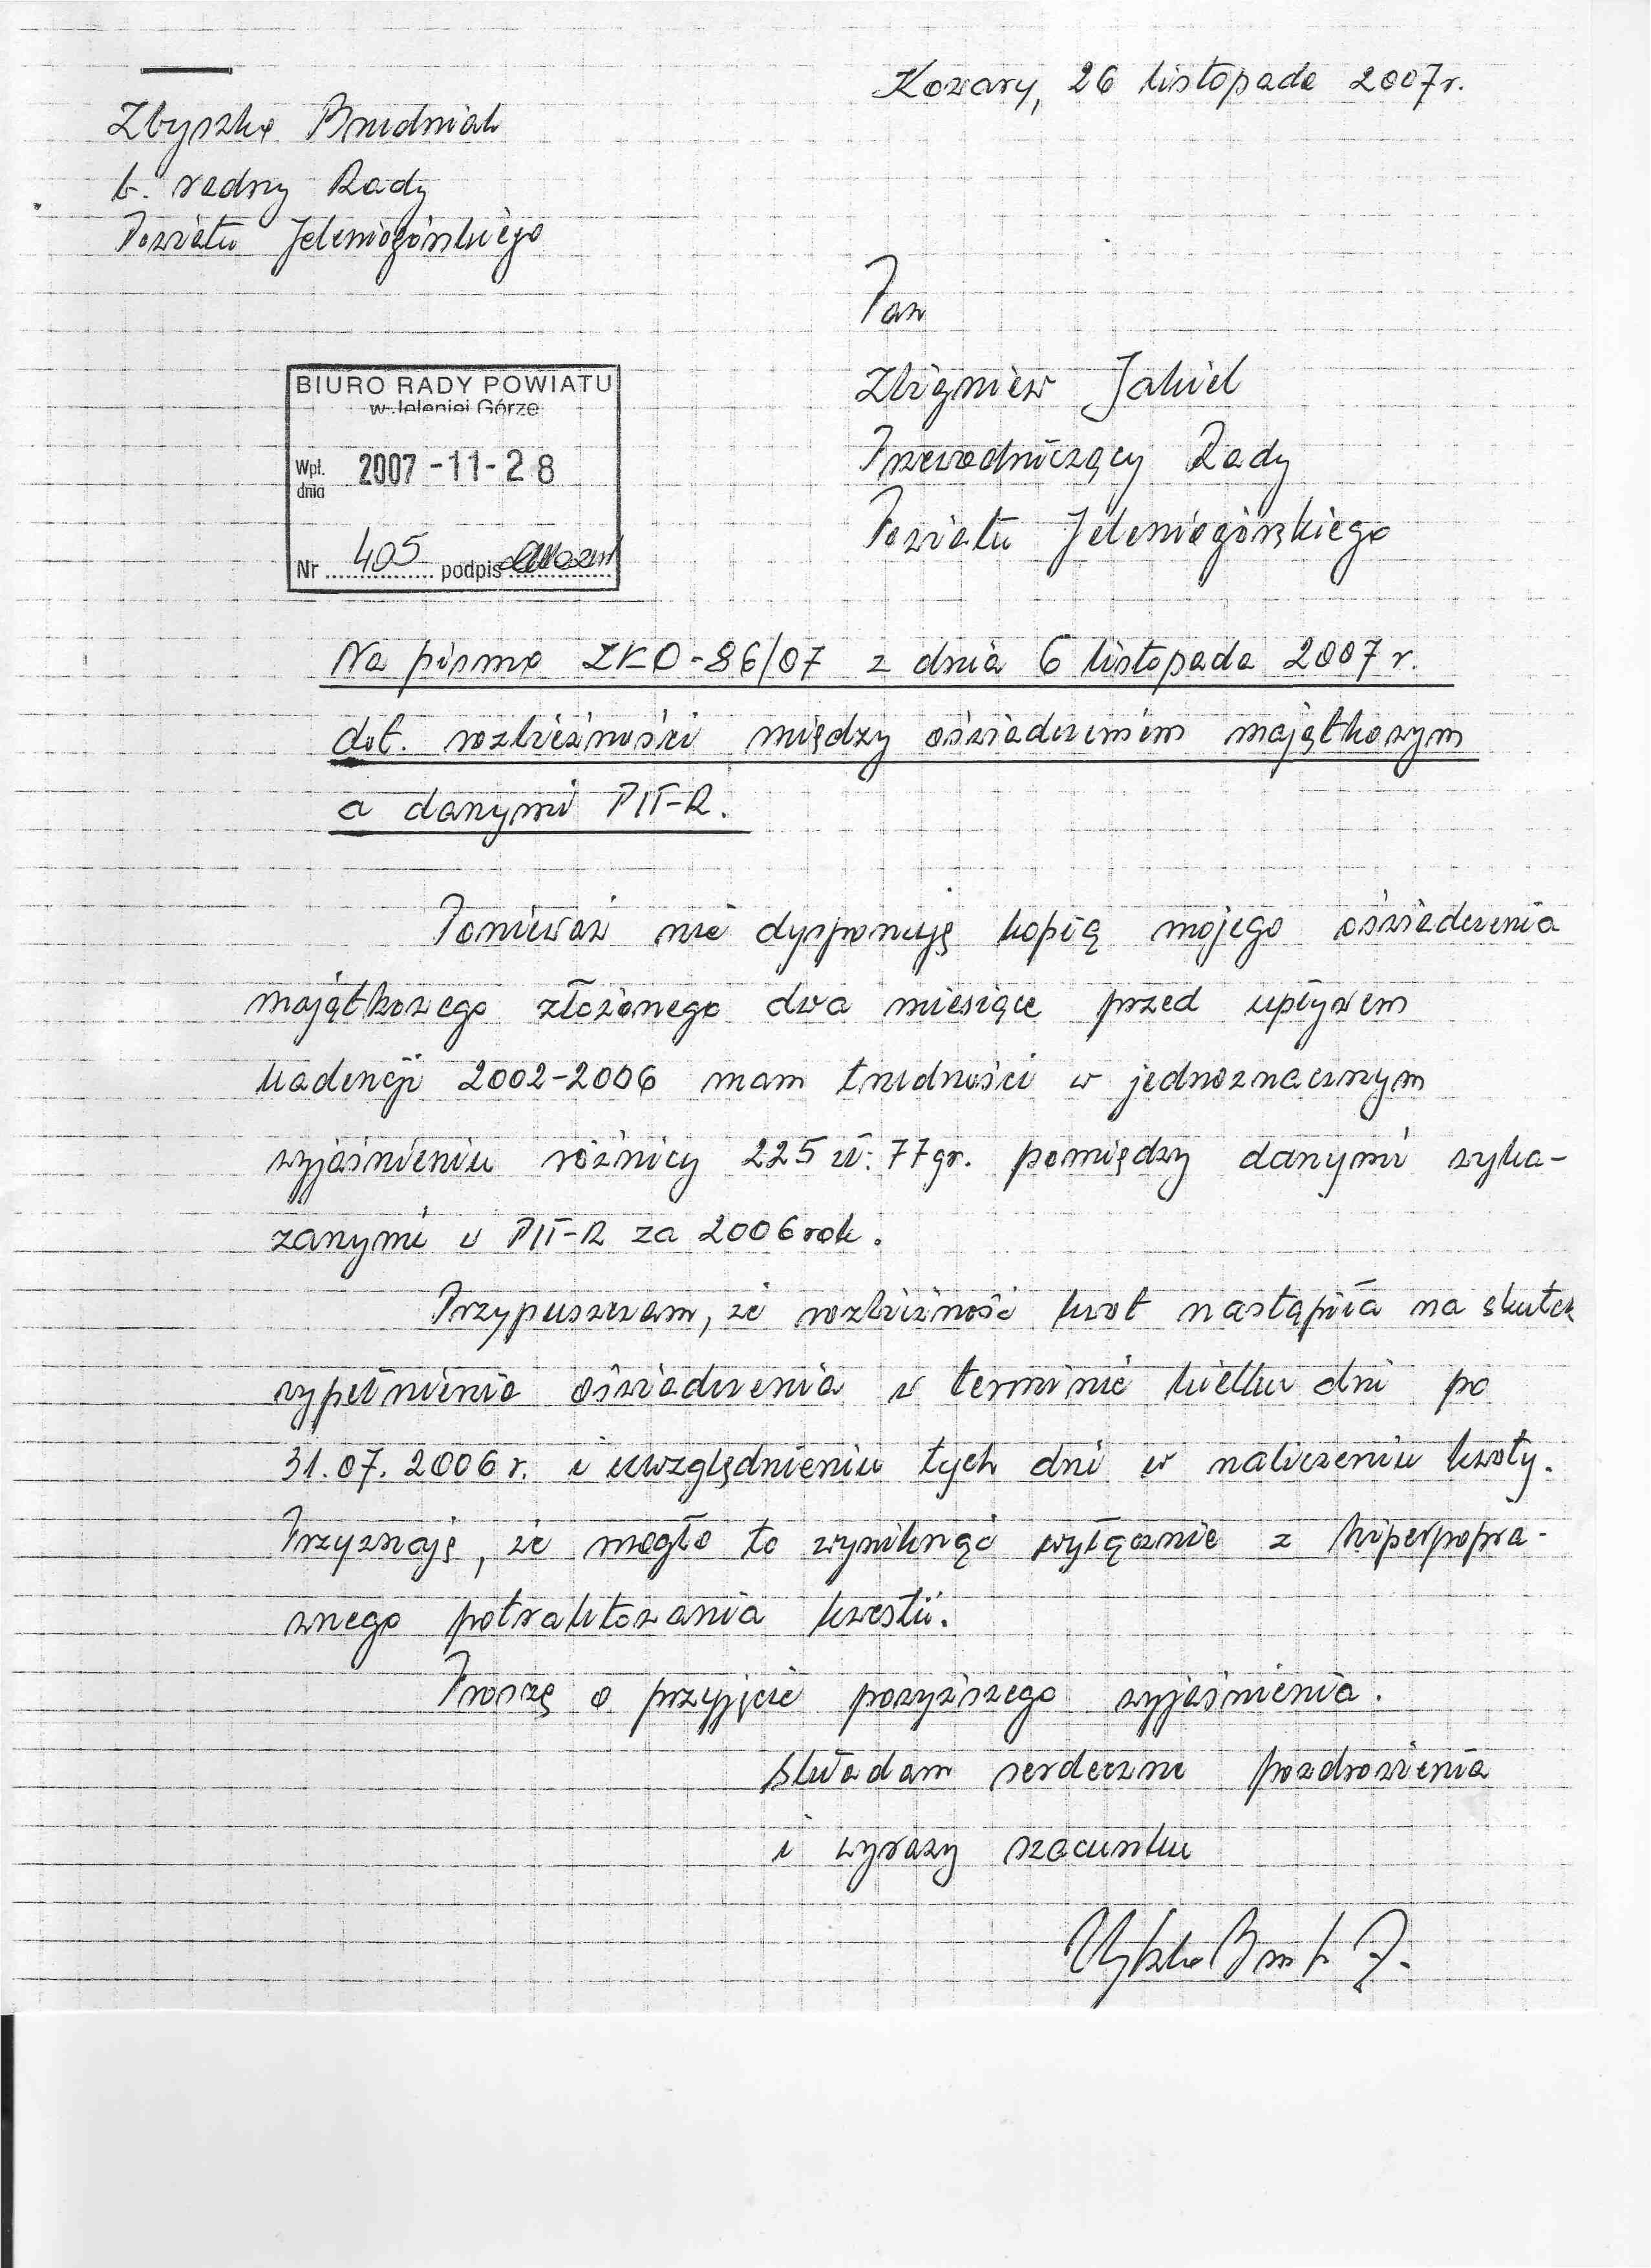 Kowary, 26 listopada 2007r.
Zbyszko Brudniak
b. radny Rady
Powiatu Jeleniogórskiego
Pan
Zbigniew Jakiel
Przewodniczący Rady
Powiatu Jeleniogórskiego
BIURO RADY POWIATU
w Jeleniej Górze
Wpł. dnia 2007-11-28
Nr 405 podpis
Na pismo ZKO-86/07 z dnia 6 listopada 2007 r.
dot. rozbieżności między oświadczeniem majątkowym
a danymi PIT-R.
Ponieważ nie dysponuję kopią mojego oświadczenia
majątkowego złożonego dwa miesiące przed upływem
kadencji 2002-2006 mam trudności w jednoznacznym
wyjaśnieniu różnicy 225 zł. 77gr. pomiędzy danymi wyka-
zanymi w PIT-R za 2006 rok.
Przypuszczam, że rozbieżność kwot nastąpiła na skutek
wypełnienia oświadczenia w terminie kilku dni po
31.07.2006 r. i uwzględnieniu tych dni w naliczeniu kwoty.
Przyznaję, że mogło to wyniknąć wyłącznie z hiperpopra-
wnego potraktowania kwestii.
Proszę o przyjęcie powyższego wyjaśnienia.
Składam serdeczne pozdrowienia
i wyrazy szacunku